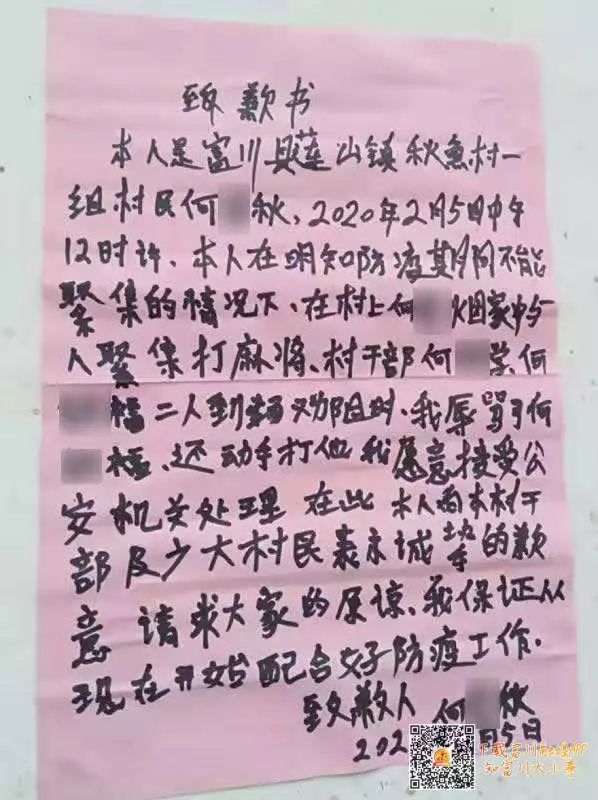 致歉书
本人是富川县莲山镇秋鱼村一
组村民何秋、2020年2月5日中午
12时许、本人在明知防疫期间不能
聚集的情况下、在村上何烟家中与
人聚集打麻将、村干部何学何
福二人到场劝阻时、我辱骂了何
福、还动手打他我愿意接受公
安机关处理 在此 本人向本村干
部及少大村民表示诚挚的歉
意 请求大家的原谅、我保证从
现在开始配合好防疫工作.
致歉人 何秋
202月5日
下载富川融媒APP
知富川大小事